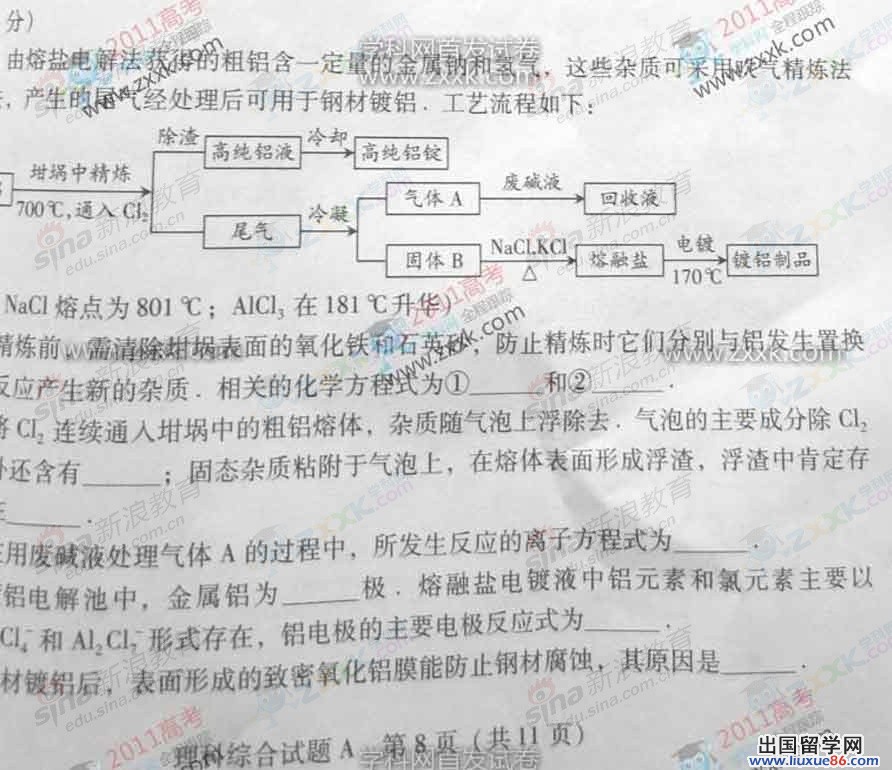 分)
由熔盐电解法获得的粗铝含一定量的金属钠和氢气,这些杂质可采用吹气精炼法
,产生的尾气经处理后可用于钢材镀铝.工艺流程如下:
除渣 高纯铝液 冷却 高纯铝锭
坩埚中精炼
700℃,通入 Cl₂
尾气 冷凝
气体 A 废碱液 回收液
固体 B NaCl,KCl △ 熔融盐 电镀 170℃ 镀铝制品
NaCl 熔点为 801 ℃;AlCl₃ 在 181 ℃升华)
精炼前,需清除坩埚表面的氧化铁和石英砂,防止精炼时它们分别与铝发生置换
反应产生新的杂质.相关的化学方程式为①______和②______.
将 Cl₂ 连续通入坩埚中的粗铝熔体,杂质随气泡上浮除去.气泡的主要成分除 Cl₂
外还含有______;固态杂质粘附于气泡上,在熔体表面形成浮渣,浮渣中肯定存
在______.
在用废碱液处理气体 A 的过程中,所发生反应的离子方程式为______.
铝电解池中,金属铝为______极.熔融盐电镀液中铝元素和氯元素主要以
Cl₄⁻ 和 Al₂Cl₇⁻ 形式存在,铝电极的主要电极反应式为______.
材镀铝后,表面形成的致密氧化铝膜能防止钢材腐蚀,其原因是______.
理科综合试题 A 第 8 页(共 11 页)
学科网首发试卷
www.zxxk.com
2011高考
全程跟踪
sina新浪教育
edu.sina.com.cn
ZXXK.com
学科网
出国留学网
www.liuxue86.com